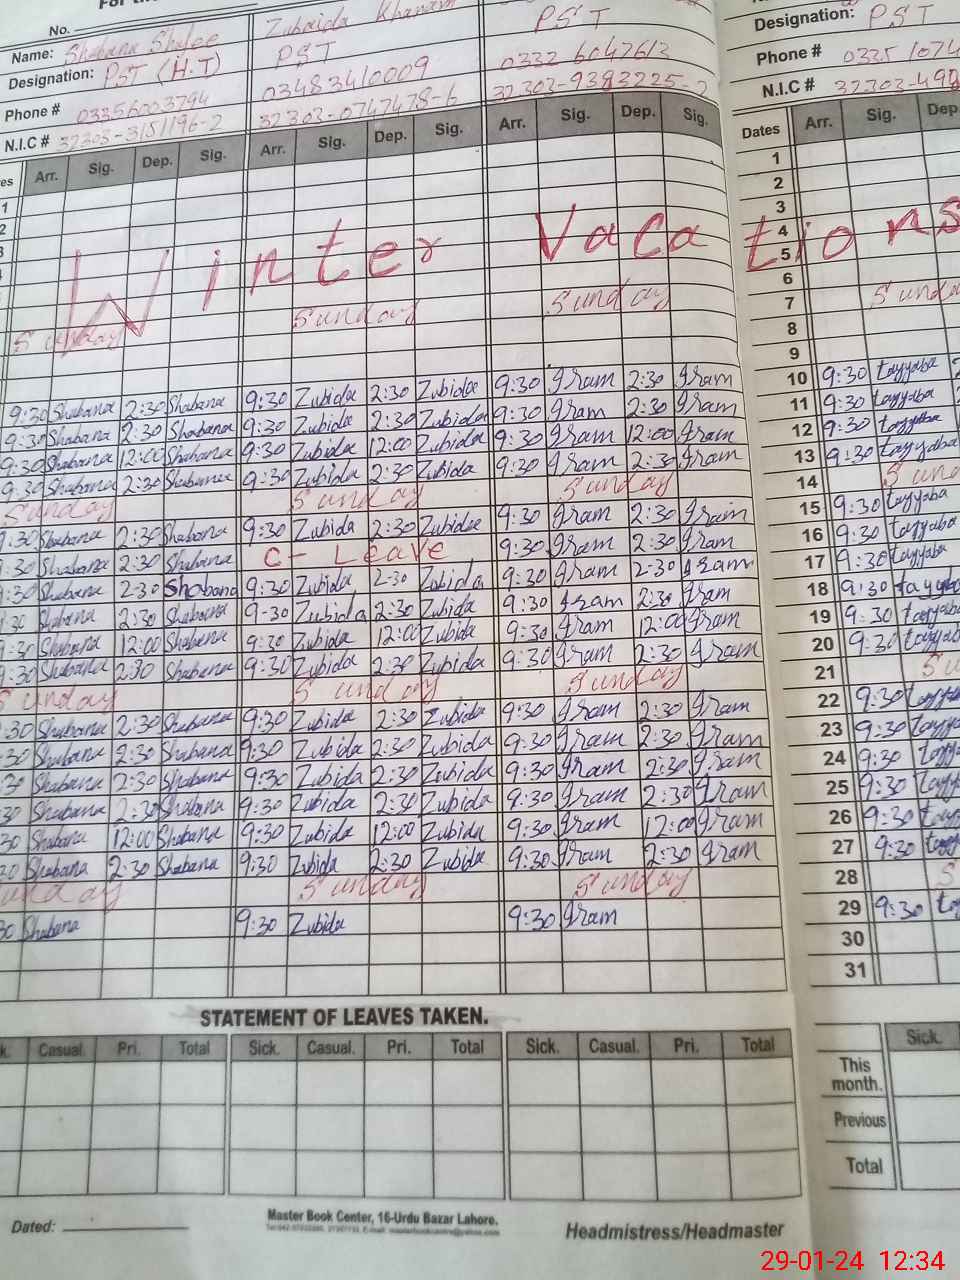 No.
Name: Shabana Shafee Zubaida Khanam
Designation: PST (H.T) PST PST Designation: PST
Phone # 03356003794 03483410009 0332 6047613 Phone # 0335 1074
N.I.C # 32303-3151196-2 32303-0747478-6 32303-9393225-2 N.I.C # 32303-490
Arr. Sig. Dep. Sig. Arr. Sig. Dep. Sig. Arr. Sig. Dep. Sig. Dates Arr. Sig. Dep
1
2
3
Winter Vacations
4
5
6
Sunday Sunday Sunday 7 Sunda
8
9
9:30 Shabana 2:30 Shabana 9:30 Zubida 2:30 Zubida 9:30 Iram 2:30 Iram 10 9:30 tayyaba
9:30 Shabana 2:30 Shabana 9:30 Zubida 2:30 Zubida 9:30 Iram 2:30 Iram 11 9:30 tayyaba
9:30 Shabana 12:00 Shabana 9:30 Zubida 12:00 Zubida 9:30 Iram 12:00 Iram 12 9:30 tayyaba
9:30 Shabana 2:30 Shabana 9:30 Zubida 2:30 Zubida 9:30 Iram 2:30 Iram 13 9:30 tayyaba
Sunday Sunday Sunday 14 Sun
:30 Shabana 2:30 Shabana 9:30 Zubida 2:30 Zubida 9:30 Iram 2:30 Iram 15 9:30 tayyaba
:30 Shabana 2:30 Shabana C- Leave 9:30 Iram 2:30 Iram 16 9:30 tayyaba
:30 Shabana 2-30 Shabana 9:30 Zubida 2-30 Zubida 9:30 Iram 2-30 Iram 17 9:30 tayyaba
:30 Shabana 2:30 Shabana 9-30 Zubida 2:30 Zubida 9:30 Iram 2:30 Iram 18 9:30 tayyaba
9:30 Shabana 12:00 Shabana 9:30 Zubida 12:00 Zubida 9:30 Iram 12:00 Iram 19 9:30 tayyaba
9:30 Shabana 2:30 Shabana 9:30 Zubida 2:30 Zubida 9:30 Iram 2:30 Iram 20 9:30 tayyab
Sunday Sunday Sunday 21 Su
:30 Shabana 2:30 Shabana 9:30 Zubida 2:30 Zubida 9:30 Iram 2:30 Iram 22 9:30 tayy
:30 Shabana 2:30 Shabana 9:30 Zubida 2:30 Zubida 9:30 Iram 2:30 Iram 23 9:30 tayya
:30 Shabana 2:30 Shabana 9:30 Zubida 2:30 Zubida 9:30 Iram 2:30 Iram 24 9:30 tayy
30 Shabana 2:30 Shabana 9:30 Zubida 2:30 Zubida 9:30 Iram 2:30 Iram 25 9:30 tayy
30 Shabana 12:00 Shabana 9:30 Zubida 12:00 Zubida 9:30 Iram 12:00 Iram 26 9:30 tayy
30 Shabana 2:30 Shabana 9:30 Zubida 2:30 Zubida 9:30 Iram 2:30 Iram 27 9:30 tayy
unday Sunday Sunday 28 S
30 Shabana 9:30 Zubida 9:30 Iram 29 9:30 tay
30
31
STATEMENT OF LEAVES TAKEN.
k. Casual. Pri. Total Sick. Casual. Pri. Total Sick. Casual. Pri. Total Sick.
This month.
Previous
Total
Dated:
Master Book Center, 16-Urdu Bazar Lahore.
Headmistress/Headmaster
29-01-24 12:34